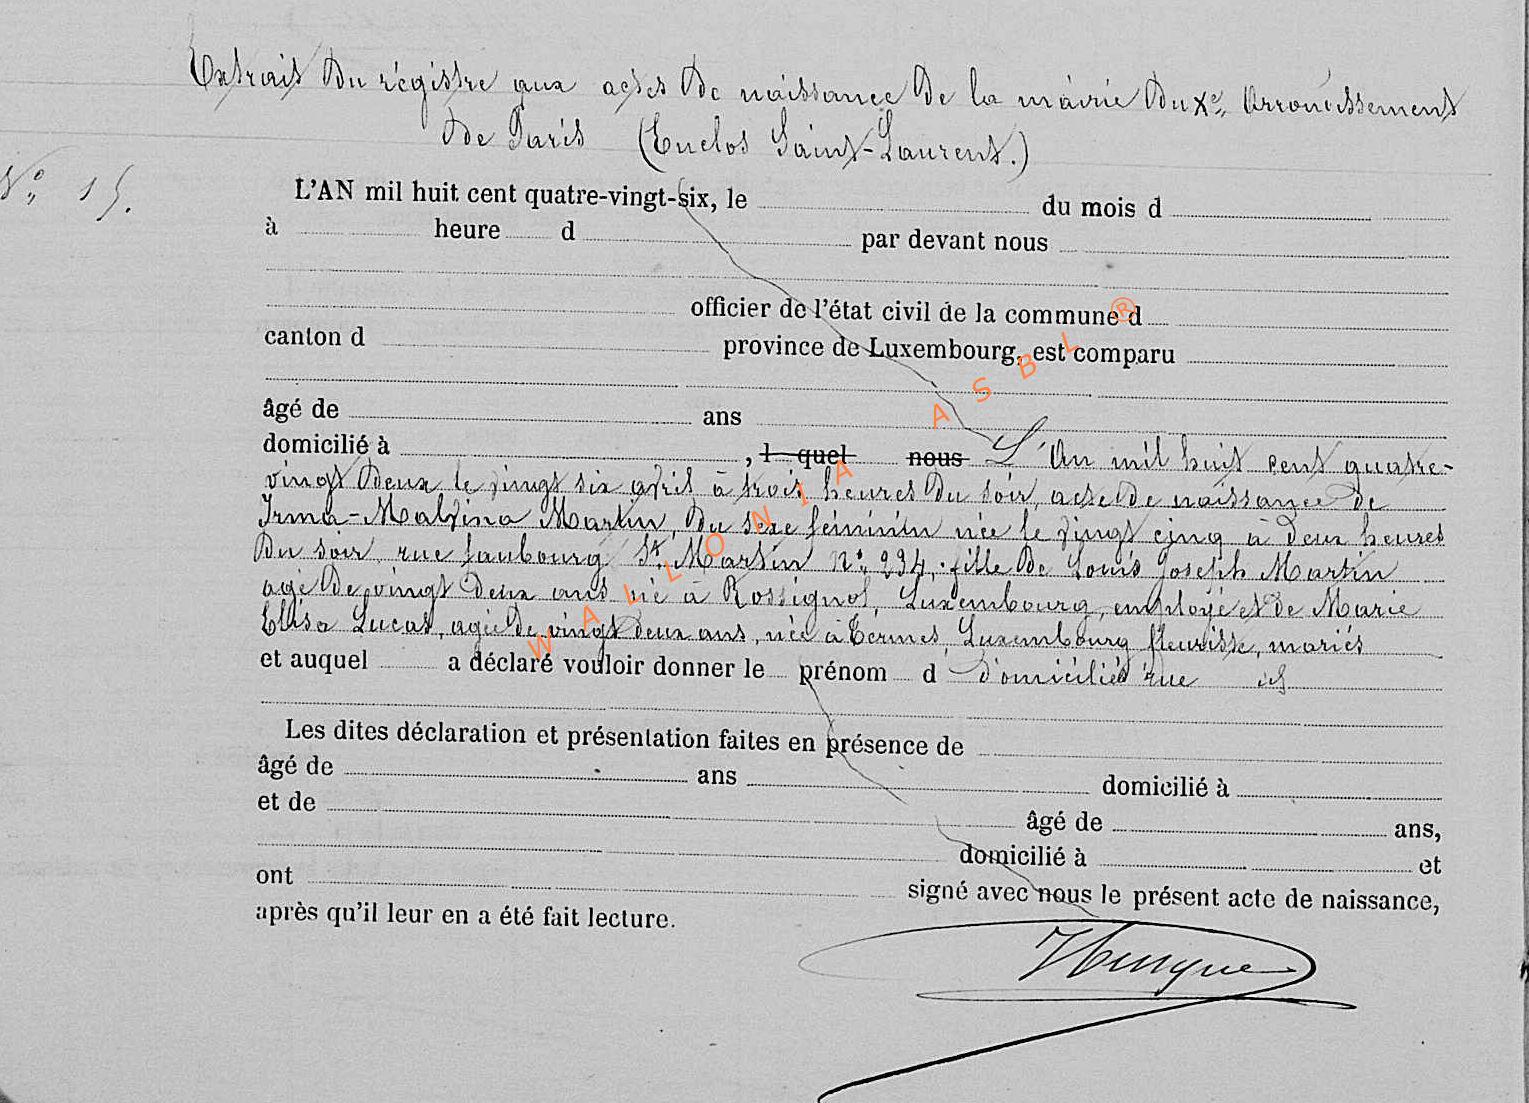 Extrait du régistre aux actes de naissance de la mairie du Xe, Arrondissement
de Paris (Enclos Saint-Laurent.)
No, 15.
L'AN mil huit cent quatre-vingt-six, le du mois d
à heure d par devant nous
officier de l'état civil de la commune d
canton d province de Luxembourg, est comparu
âgé de ans
domicilié à , l quel nous L'An mil huit cent quatre-
vingt deux le vingt six avril à trois heures du soir, acte de naissance de
Irma-Malvina Martin, du sexe féminin née le vingt cinq à deux heures
du soir, rue faubourg St. Martin No. 234, fille de Louis Joseph Martin
agé de vingt deux ans né à Rossignol, Luxembourg, employé et de Marie
Elisa Lucas, agée de vingt deux ans, née à Termes, Luxembourg fleuriste, mariés
et auquel a déclaré vouloir donner le prénom d domiciliés rue
Les dites déclaration et présentation faites en présence de
âgé de ans domicilié à
et de âgé de ans,
domicilié à et
ont signé avec nous le présent acte de naissance,
après qu'il leur en a été fait lecture.
WALLONIA ASBL ®